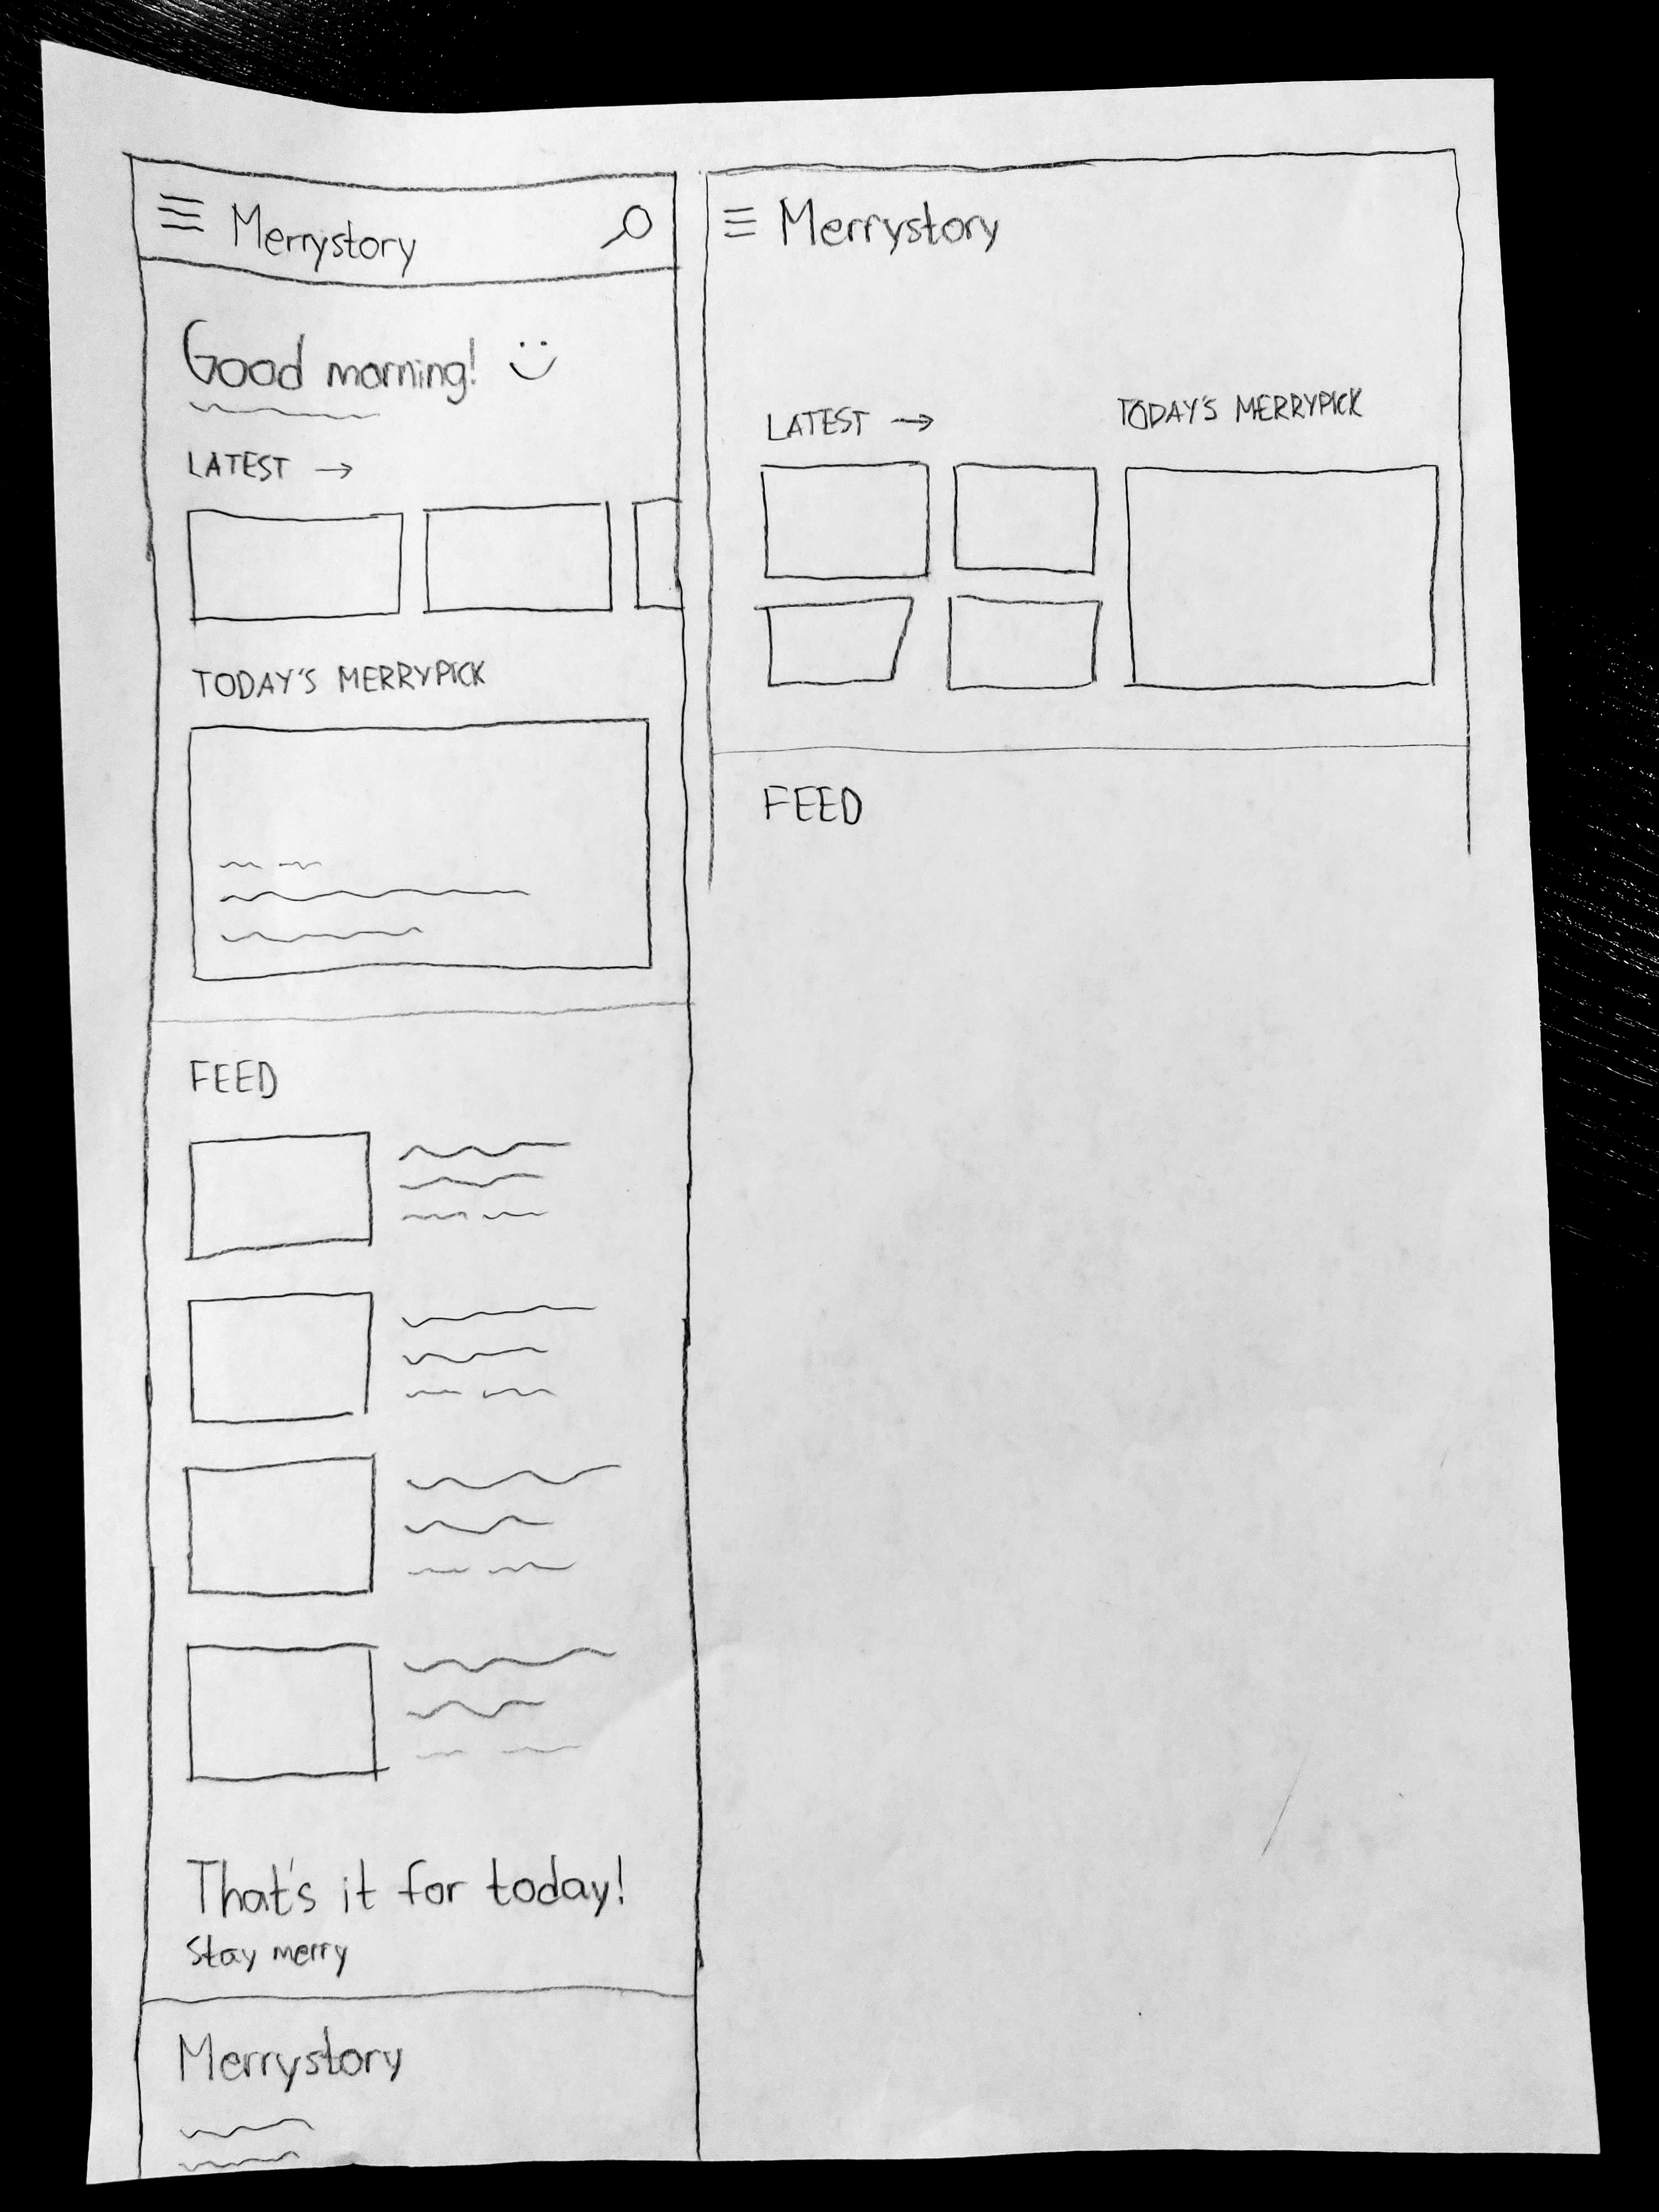 Merrystory
Good morning!
LATEST →
TODAY'S MERRYPICK
FEED
That's it for today!
Stay merry
Merrystory
Merrystory
LATEST →
TODAY'S MERRYPICK
FEED